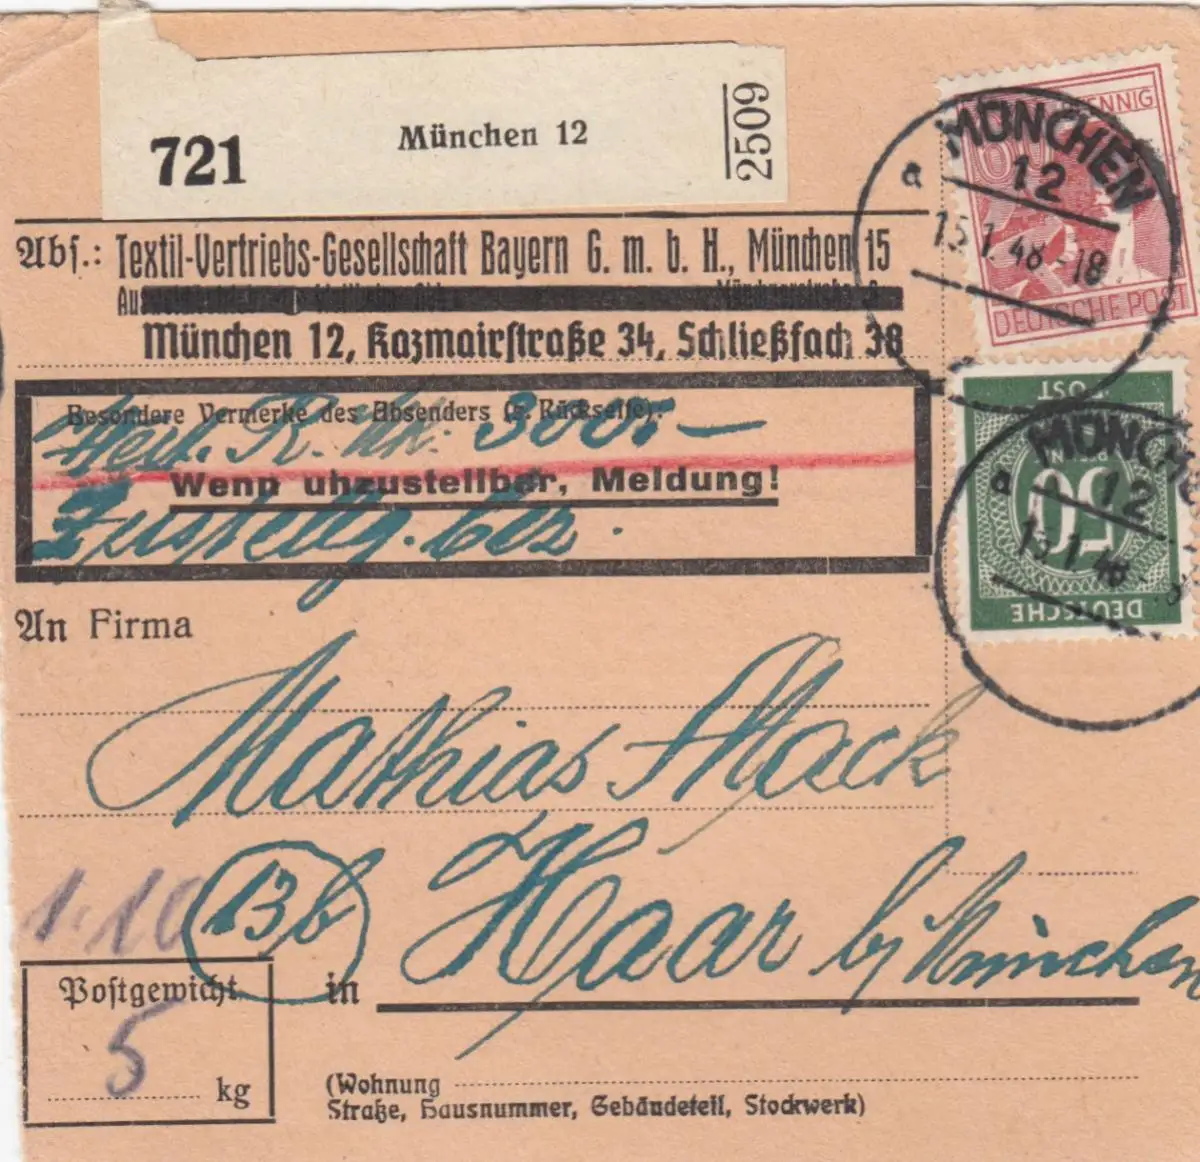 721 München 12 2509
MÜNCHEN
a 12
15.1.48-18
PFENNIG
DEUTSCHE POST
Abs.: Textil-Vertriebs-Gesellschaft Bayern G. m. b. H., München 15
München 12, Kazmairstraße 34, Schließfach 38
Besondere Vermerke des Absenders (s. Rückseite):
Wert. R. M.: 3000.—
Wenn unzustellbar, Meldung!
Zustellg. bez.
POST
PFENN
50
DEUTSCHE
a 12
An Firma
Mathias Stack
1.10 13b
in Haar bei München
Postgewicht
5 kg
(Wohnung
Straße, Hausnummer, Gebäudeteil, Stockwerk)